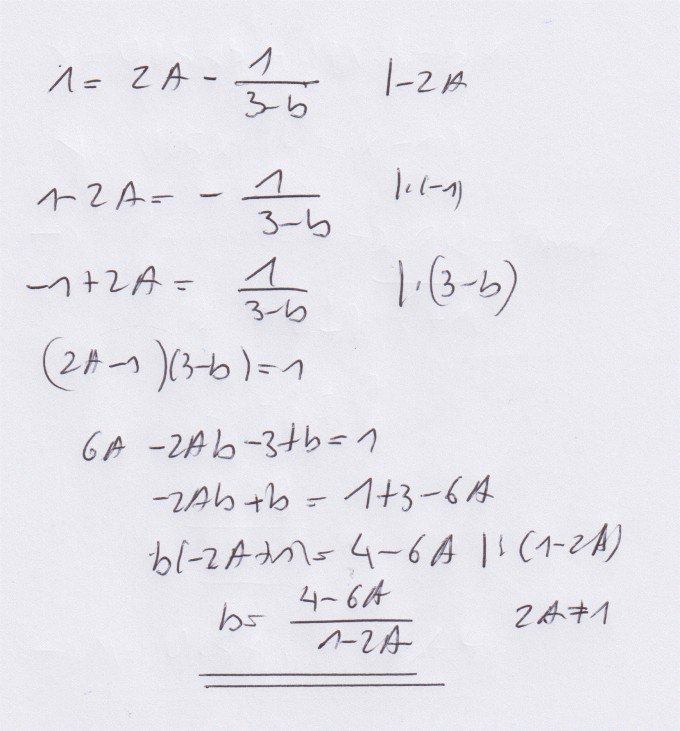 1 = 2A - 1/(3-b) |-2A
1-2A = - 1/(3-b) |·(-1)
-1+2A = 1/(3-b) |·(3-b)
(2A-1)(3-b) = 1
6A -2Ab -3+b = 1
-2Ab+b = 1+3-6A
b(-2A+1) = 4-6A |:(1-2A)
b = (4-6A)/(1-2A) 2A≠1